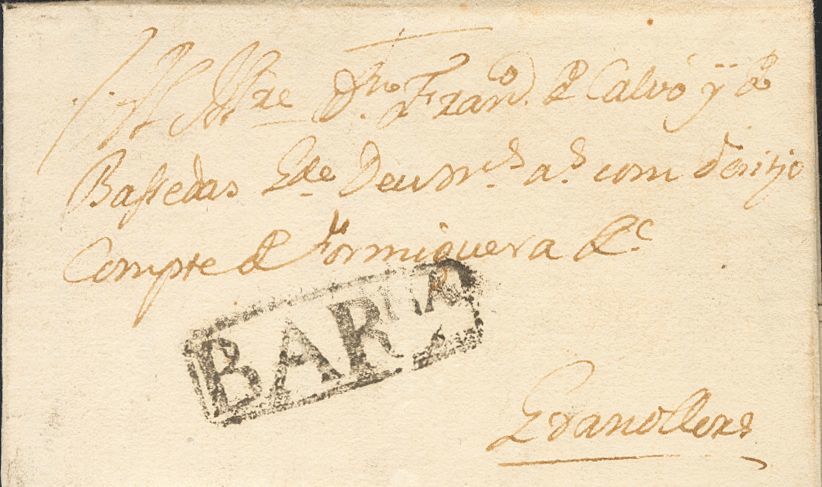 Al Mre. Dn. Franco. de Calvó y de
Bassedas Gde Deu ms. as. com desitjo
Compte de Formiguera &c.
BARNA
Granollers